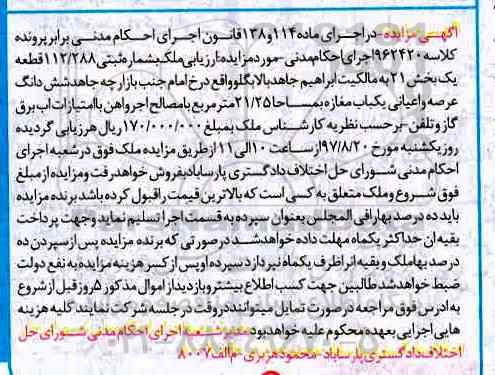 آگهی مزایده - در اجرای ماده ۱۱۴ و ۱۳۸ قانون اجرای احکام مدنی برابر پرونده
کلاسه ۹۶۲۴۲۰ اجرای احکام مدنی - مورد مزایده: ارزیابی ملک بشماره ثبتی ۱۱۲/۲۸۸ قطعه
یک بخش ۲۱ به مالکیت ابراهیم جاهد بالابگلو واقع درخ امام جنب بازارچه جاهد شش دانگ
عرصه و اعیانی یکباب مغازه بمساحت ۲۱/۲۵ متر مربع با مصالح اجر و اهن با امتیازات اب برق
گاز و تلفن - بر حسب نظریه کارشناس ملک بمبلغ ۱۷۰/۰۰۰/۰۰۰ ریال هر ارزیابی گردیده
روز یکشنبه مورخ ۹۷/۸/۲۰ از ساعت ۱۰ الی ۱۱ از طریق مزایده ملک فوق در شعبه اجرای
احکام مدنی شورای حل اختلاف دادگستری پارساباد بفروش خواهد رفت و مزایده از مبلغ
فوق شروع و ملک متعلق به کسی است که بالاترین قیمت را قبول کرده باشد برنده مزایده
باید ده درصد بها را فی المجلس بعنوان سپرده به قسمت اجرا تسلیم نماید و جهت پرداخت
بقیه ان حداکثر یکماه مهلت داده خواهد شد در صورتی که برنده مزایده پس از سپردن ده
درصد بها ملک و بقیه انرا ظرف یکماه نپردازد سپرده او پس از کسر هزینه مزایده به نفع دولت
ضبط خواهد شد طالبین جهت کسب اطلاع بیشتر و بازدید از اموال مذکور ۵ روز قبل از شروع
به ادرس فوق مراجعه در صورت تمایل میتوانند در وقت در جلسه شرکت نمایند کلیه هزینه
هایی اجرایی بعهده محکوم علیه خواهد بود مدیر شعبه اجرای احکام مدنی شورای حل
اختلاف دادگستری پارساباد - محمود هژبری - م الف ۸۰۰۷